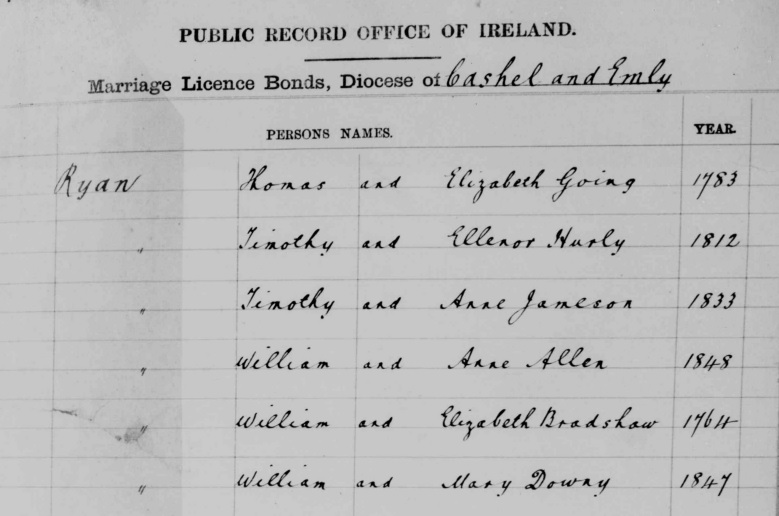 PUBLIC RECORD OFFICE OF IRELAND.
Marriage Licence Bonds, Diocese of Cashel and Emly
PERSONS NAMES. YEAR.
Ryan Thomas and Elizabeth Going 1783
" Timothy and Ellenor Hurly 1812
" Timothy and Anne Jameson 1833
" William and Anne Allen 1848
" William and Elizabeth Bradshaw 1764
" William and Mary Downy 1847